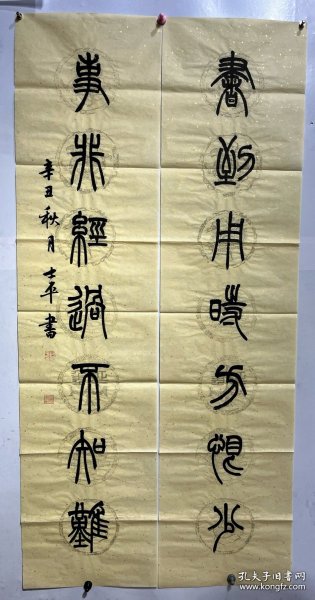 書到用時方恨少
事非經過不知難
辛丑秋月士平書
孔夫子旧书网
www.kongfz.com